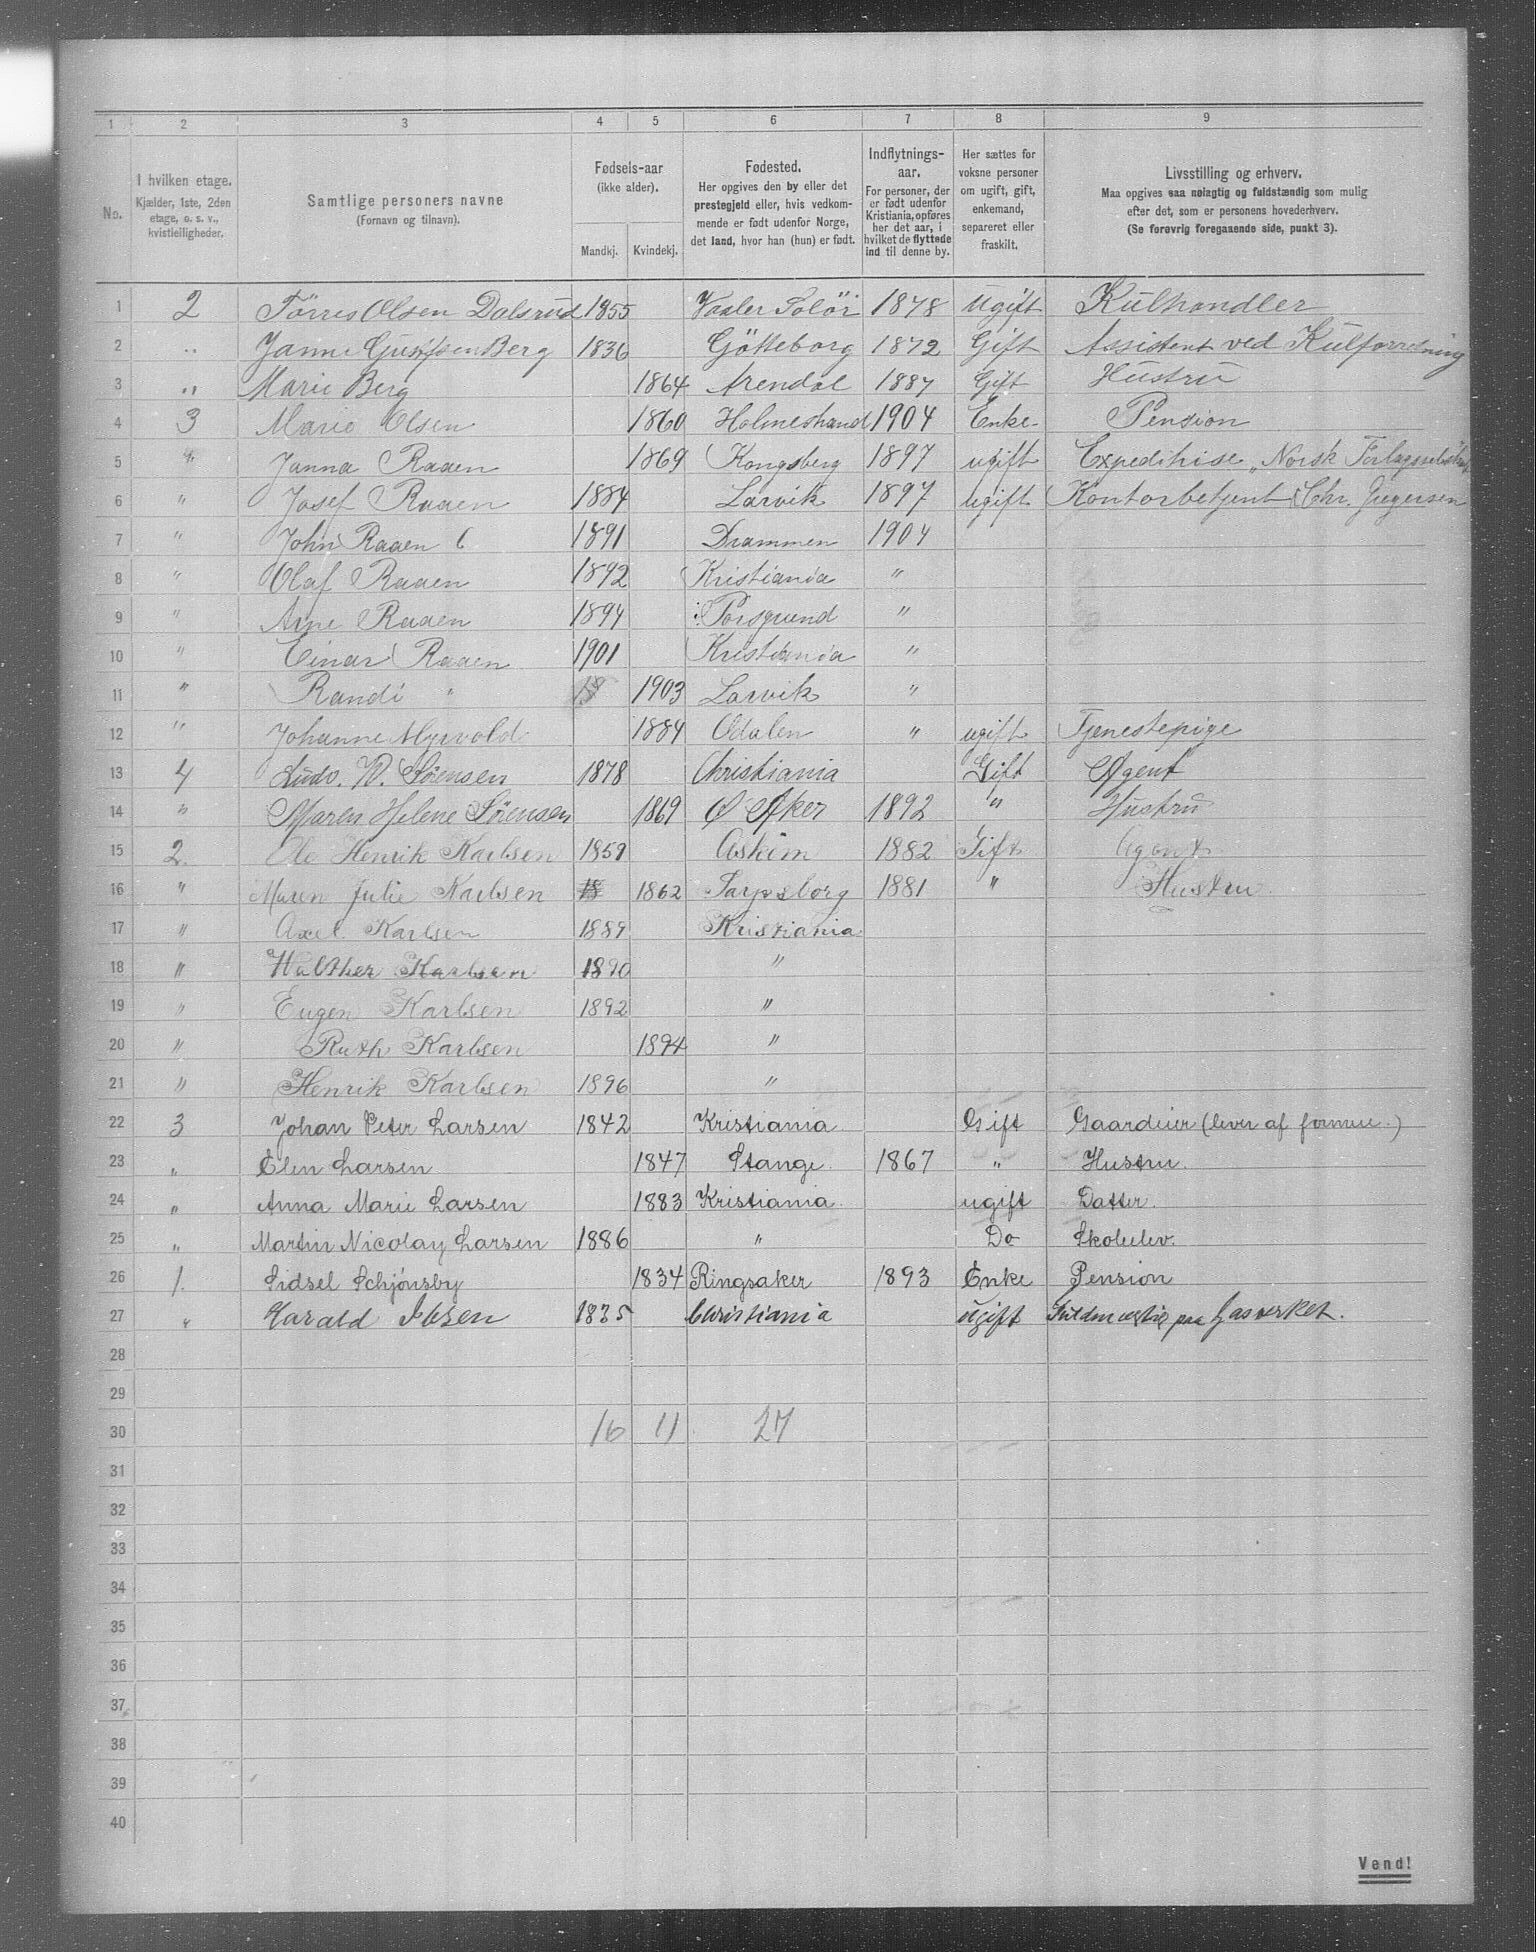 1 2 3 4 5 6 7 8 9
No.
I hvilken etage.
Kjælder, 1ste, 2den
etage, o. s. v.,
kvistleiligheder.
Samtlige personers navne
(Fornavn og tilnavn).
Fødsels-aar
(ikke alder).
Mandkj. Kvindekj.
Fødested.
Her opgives den by eller det
prestegjeld eller, hvis vedkom-
mende er født udenfor Norge,
det land, hvor han (hun) er født.
Indflytnings-
aar.
For personer, der
er født udenfor
Kristiania, opføres
her det aar, i
hvilket de flyttede
ind til denne by.
Her sættes for
voksne personer
om ugift, gift,
enkemand,
separeret eller
fraskilt.
Livsstilling og erhverv.
Maa opgives saa nøiagtig og fuldstændig som mulig
efter det, som er personens hovederhverv.
(Se forøvrig foregaaende side, punkt 3).
1 2 Törris Olsen Dalsrud 1855 Vaaler Solöi 1878 Ugift Kulhandler
2 " Janne Gustfsen Berg 1836 Götteborg 1872 Gift Assistent ved Kulforretning
3 " Marie Berg 1864 Arendal 1887 Gift Hustru
4 3 Marie Olsen 1860 Holmestrand 1904 Enke Pension
5 " Janna Raaen 1869 Kongsberg 1897 ugift Expeditrise "Norsk
6 " Josef Raaen 1884 Larvik 1897 ugift Kontorbetjent i Chr. Jregersen
7 " John Raaen 1891 Drammen 1904
8 " Olaf Raaen 1892 Kristiania "
9 " Arne Raaen 1894 Porsgrund "
10 " Einar Raaen 1901 Kristiania "
11 " Randi " 18 1903 Larvik "
12 " Johanne Myrvold 1884 Odalen " ugift Tjenestepige
13 4 Ludv. W. Sørensen 1878 Christiania Gift Agent
14 " Maren Helene Sørensen 1869 Ø Aker 1892 " Hustru
15 2. Ole Henrik Karlsen 1859 Askim 1882 Gift Agent
16 " Maren Julie Karlsen 18 1862 Sarpsborg 1881 " Hustru
17 " Axel Karlsen 1889 Kristiania
18 " Walther Karlsen 1890 "
19 " Eugen Karlsen 1892 "
20 " Ruth Karlsen 1894 "
21 " Henrik Karlsen 1896 "
22 3 Johan Peter Larsen 1842 Kristiania Gift Gaardeier (lever af formue.)
23 " Elen Larsen 1847 Stange. 1867 " Hustru.
24 " Anna Marie Larsen 1883 Kristiania. ugift Datter.
25 " Martin Nicolay Larsen 1886 " Do Skoleelev.
26 1. Sidsel Schjønsby 1834 Ringsaker 1893 Enke Pension
27 " Harald Ibsen 1835 Christiania ugift Fuldmægtig paa Gasverket.
28
29
30 16 11 27
31
32
33
34
35
36
37
38
39
40
Vend!